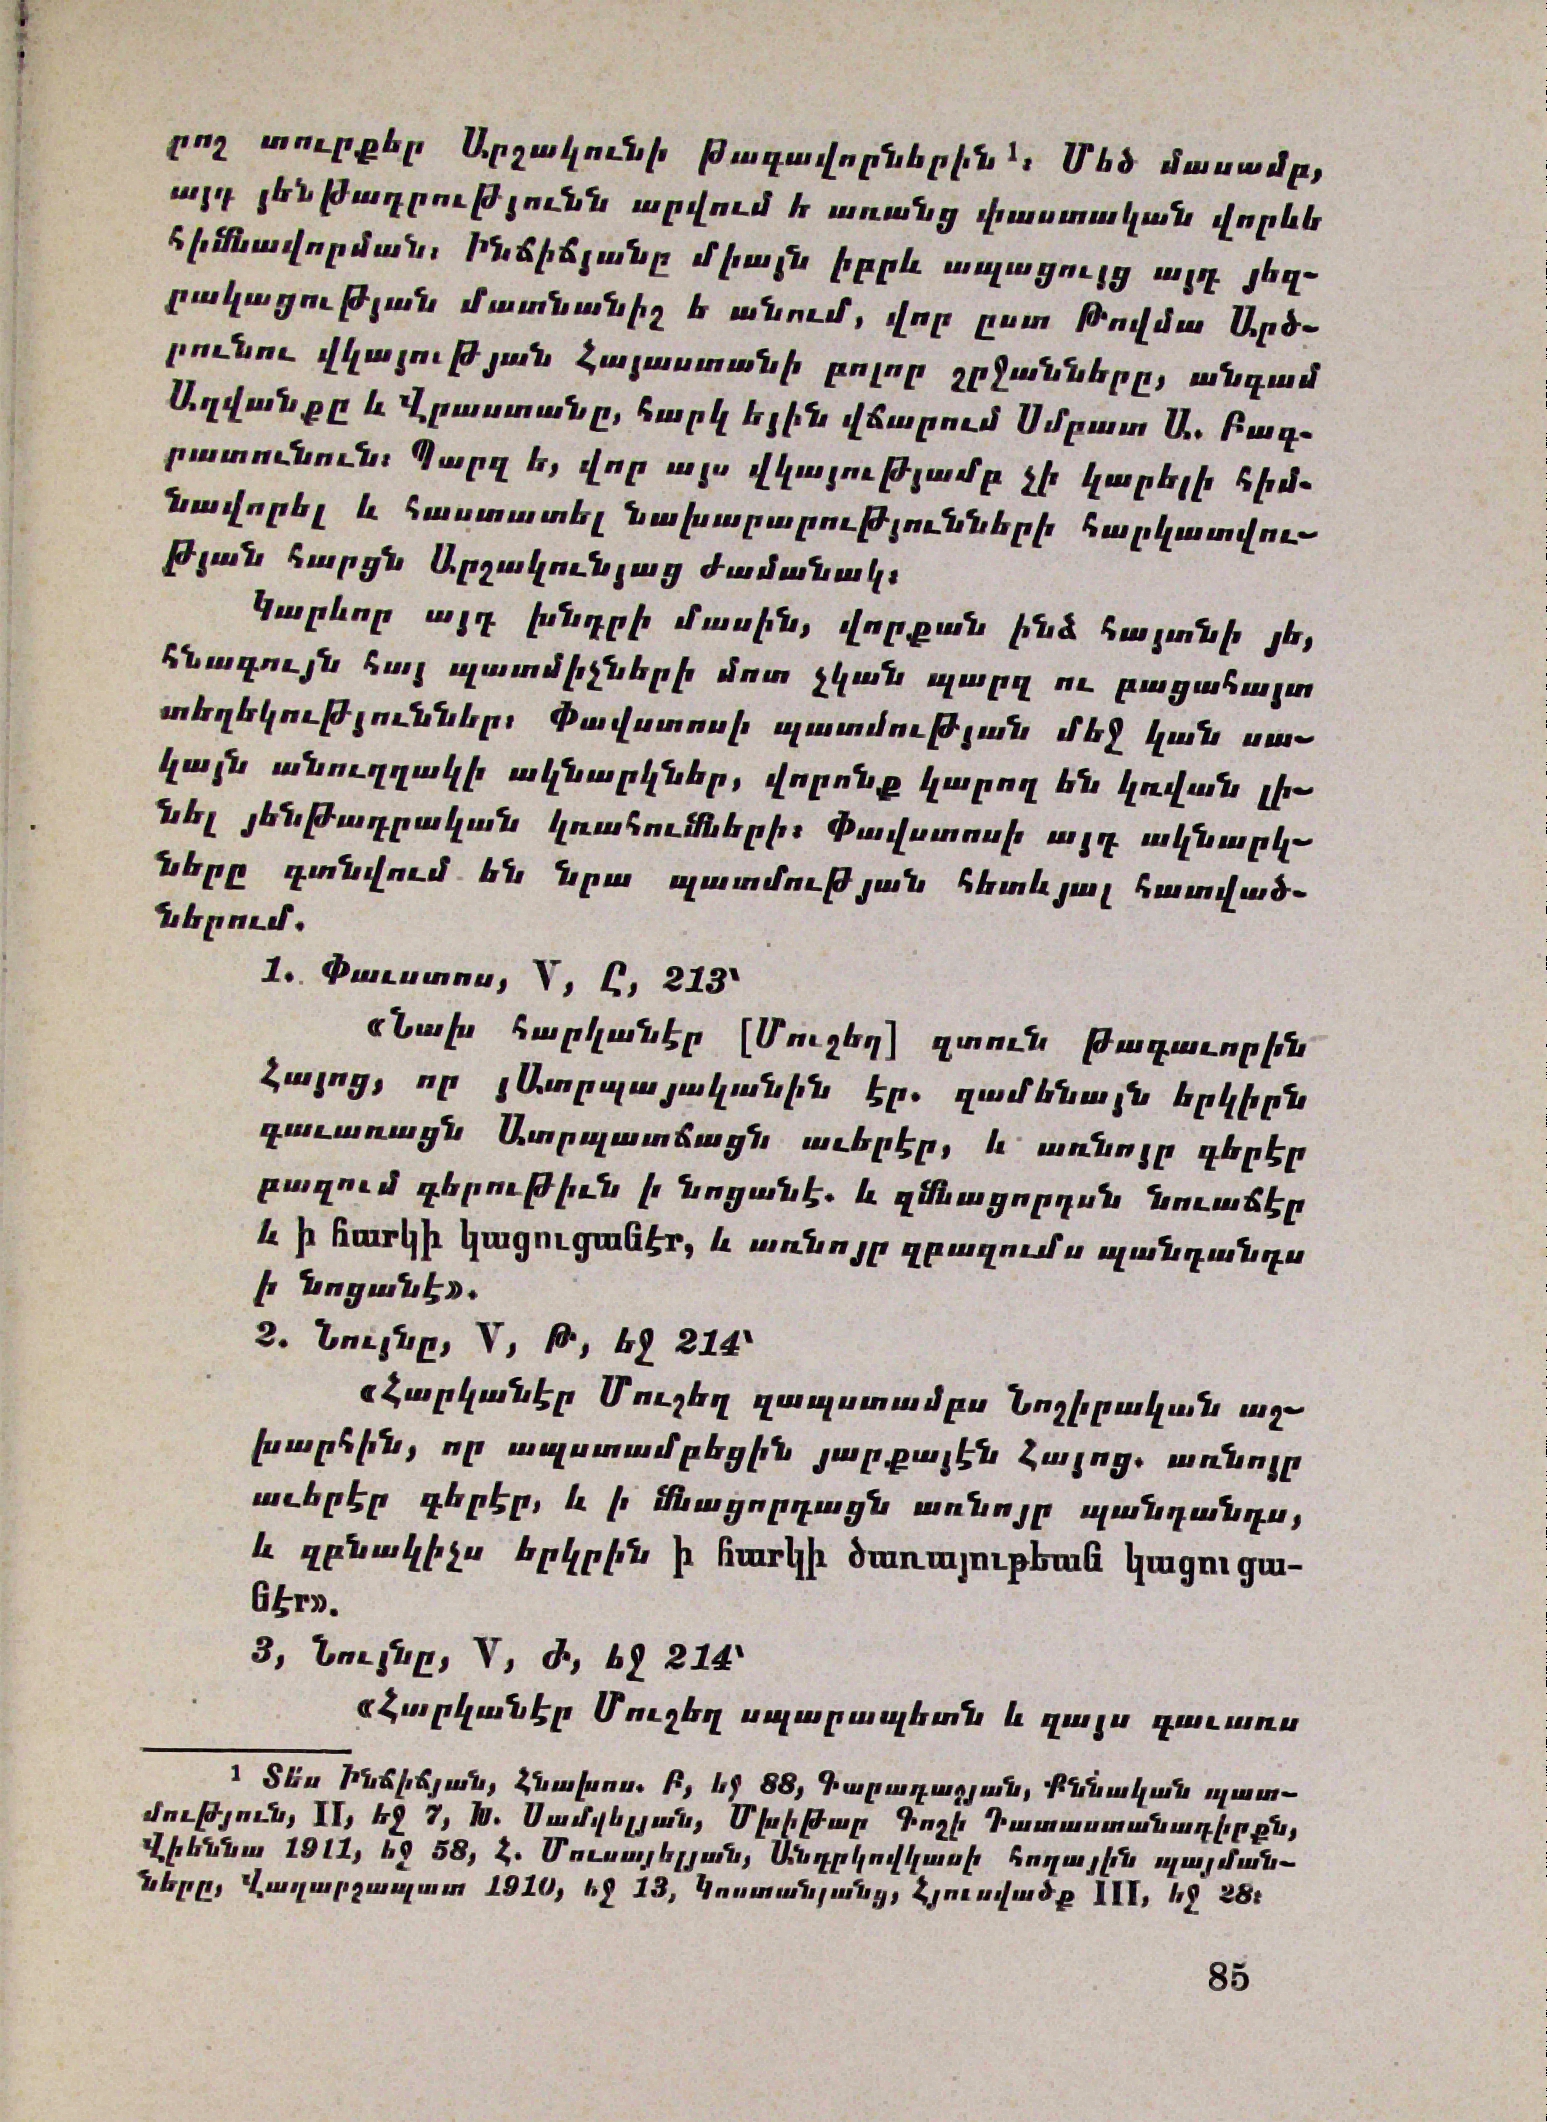 րոշ տուրքեր Արշակունի թագավորներին¹։ Մեծ մասամբ,
այդ յենթադրությունն արվում ե առանց փաստական վորևե
հիմնավորման։ Ինճիճյանը միայն իբրև ապացույց այդ յեզ-
րակացության մատնանիշ ե անում, վոր ըստ Թովմա Արծ-
րունու վկայության Հայաստանի բոլոր շրջանները, անգամ
Աղվանքը և Վրաստանը, հարկ եյին վճարում Սմբատ Ա. Բագ-
րատունուն։ Պարզ ե, վոր այս վկայությամբ չի կարելի հիմ-
նավորել և հաստատել նախարարությունների հարկատվու-
թյան հարցն Արշակունյաց ժամանակ։
Կարևոր այդ խնդրի մասին, վորքան ինձ հայտնի յե,
հնագույն հայ պատմիչների մոտ չկան պարզ ու բացահայտ
տեղեկություններ։ Փավստոսի պատմության մեջ կան սա-
կայն անուղղակի ակնարկներ, վորոնք կարող են կռվան լի-
նել յենթադրական կռահումների։ Փավստոսի այդ ակնարկ-
ները գտնվում են նրա պատմության հետևյալ հատված-
ներում.
1. Փաւստոս, V, Ը, 213՝
«Նախ հարկանէր [Մուշեղ] զտուն թագաւորին
Հայոց, որ յԱտրպայականին էր. զամենայն երկիրն
գաւառացն Ատրպատճացն աւերէր, և առնոյր գերէր
բազում գերութիւն ի նոցանէ. և զմնացորդսն նուաճէր
և ի հարկի կացուցանէր, և առնոյր զբազումս պանդանդս
ի նոցանէ».
2. Նույնը, V, Թ, եջ 214՝
«Հարկանէր Մուշեղ զապստամբս Նոշիրական աշ-
խարհին, որ ապստամբեցին յարքայէն Հայոց. առնոյր
աւերէր գերէր, և ի մնացորդացն առնոյր պանդանդս,
և զբնակիչս երկրին ի հարկի ծառայութեան կացուցա-
նէր».
3, Նույնը, V, Ժ, եջ 214՝
«Հարկանէր Մուշեղ սպարապետն և զայս գաւառս
¹ Տե՛ս Ինճիճյան, Հնախոս. Բ, եջ 88, Գարագաշյան, Քննական պատ-
մություն, II, եջ 7, Խ. Սամվելյան, Մխիթար Գոշի Դատաստանագիրքն,
Վիեննա 1911, եջ 58, Հ. Մուսայելյան, Անդրկովկասի հողային պայման-
ները, Վաղարշապատ 1910, եջ 13, Կոստանյանց, Հյուսվածք III, եջ 28։
85